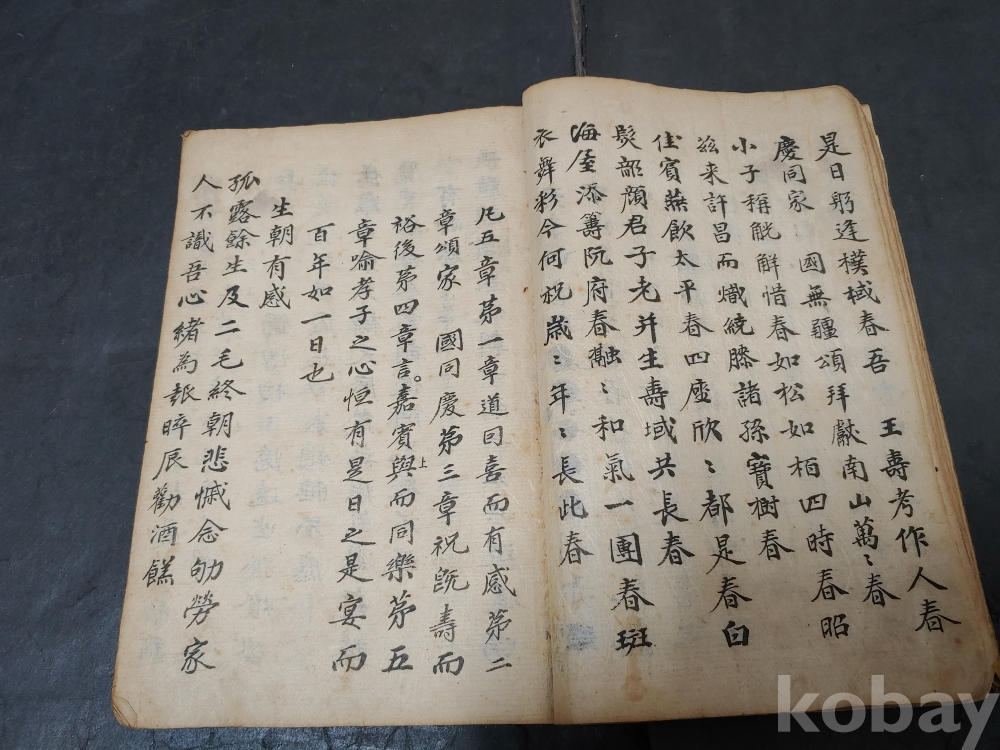 是日躬逢棫樸春吾　王壽考作人春
慶同家　國無疆頌拜獻南山萬〻春
小子稱觥解惜春如松如栢四時春昭
玆来許昌而熾繞膝諸孫寶樹春
佳賓燕飮太平春四座欣〻都是春白
髮韶顔君子老并生壽域共長春
海屋添籌阮府春融〻和氣一團春斑
衣舞彩今何祝歲〻年〻長此春
凡五章第一章道回喜而有感第二
章頌家　國同慶第三章祝旣壽而
裕後第四章言嘉賓與上而同樂第五
章喻孝子之心恒有是日之是宴而
百年如一日也
生朝有感
孤露餘生及二毛終朝悲慽念劬勞家
人不識吾心緖為趂晬辰勸酒餻
kobay